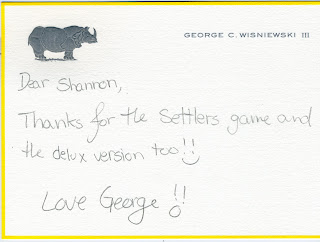 GEORGE C. WISNIEWSKI III
Dear Shannon,
Thanks for the Settlers game and
the delux version too!!
Love George !!